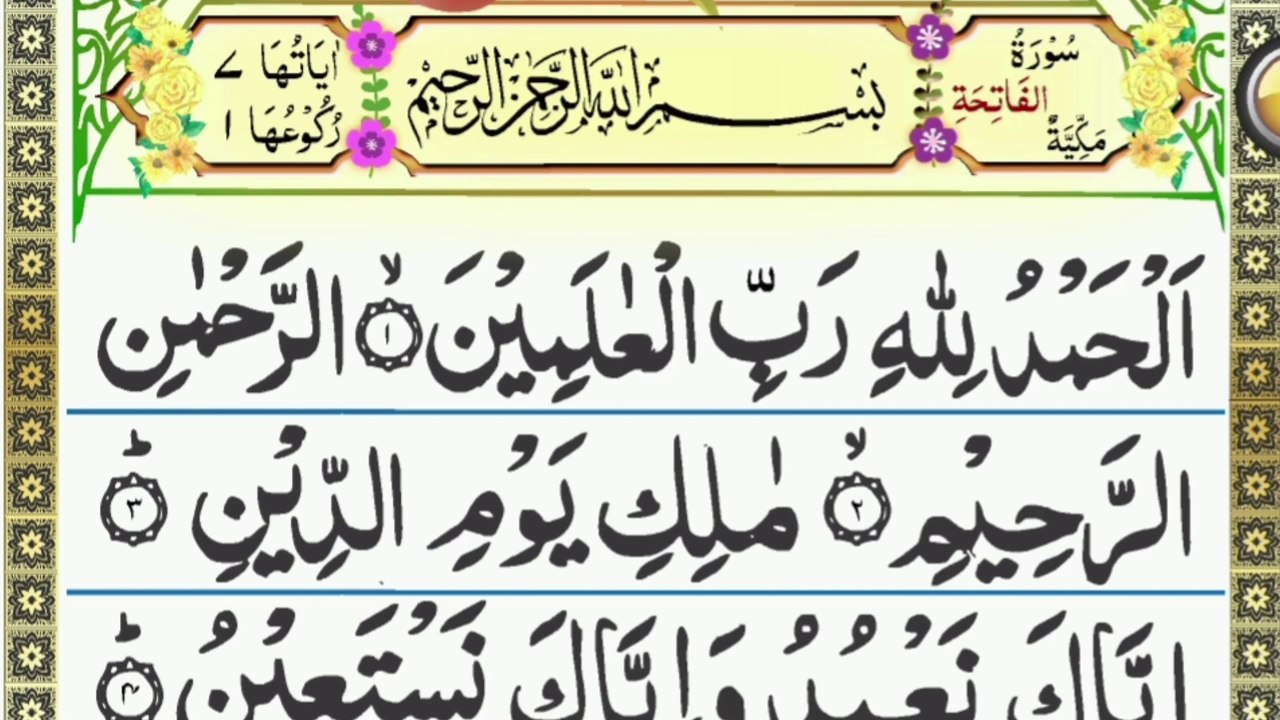 سُوْرَةُ
الفَاتِحَةِ
مَكِّيَّةٌ
بسم الله الرحمن الرحيم
اٰيَاتُهَا ٧
رُكُوْعُهَا ١
اَلْحَمْدُ لِلّٰهِ رَبِّ الْعٰلَمِيْنَ ۙ ١ الرَّحْمٰنِ
الرَّحِيْمِ ۙ ٢ مٰلِكِ يَوْمِ الدِّيْنِ ؕ ٣
اِيَّاكَ نَعْبُدُ وَاِيَّاكَ نَسْتَعِيْنُ ؕ ۴